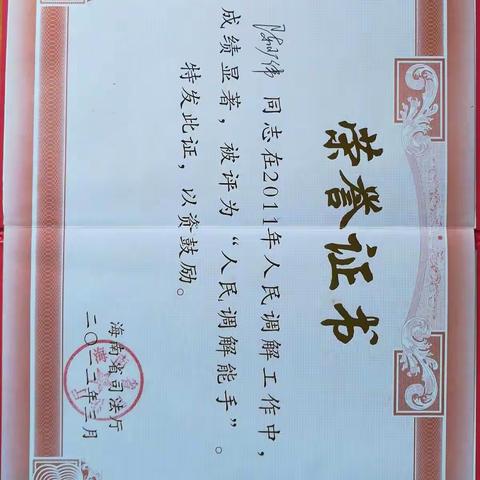 荣誉证书
同志在2011年人民调解工作中，
成绩显著，被评为“人民调解能手”。
特发此证，以资鼓励。
海南省司法厅
二〇一二年三月